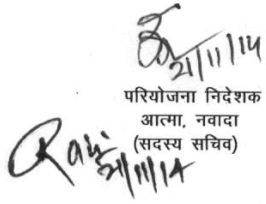 21/11/14
परियोजना निदेशक
आत्मा, नवादा
(सदस्य सचिव)
21/11/14